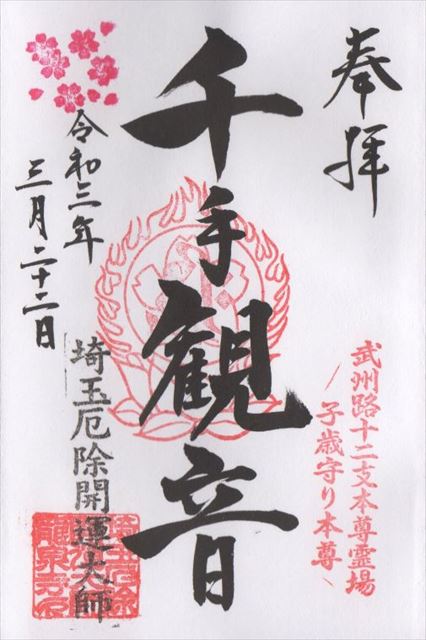 奉拝
武州路十二支本尊霊場
子歳守り本尊
千手観音
令和三年
三月二十二日
埼玉厄除開運大師